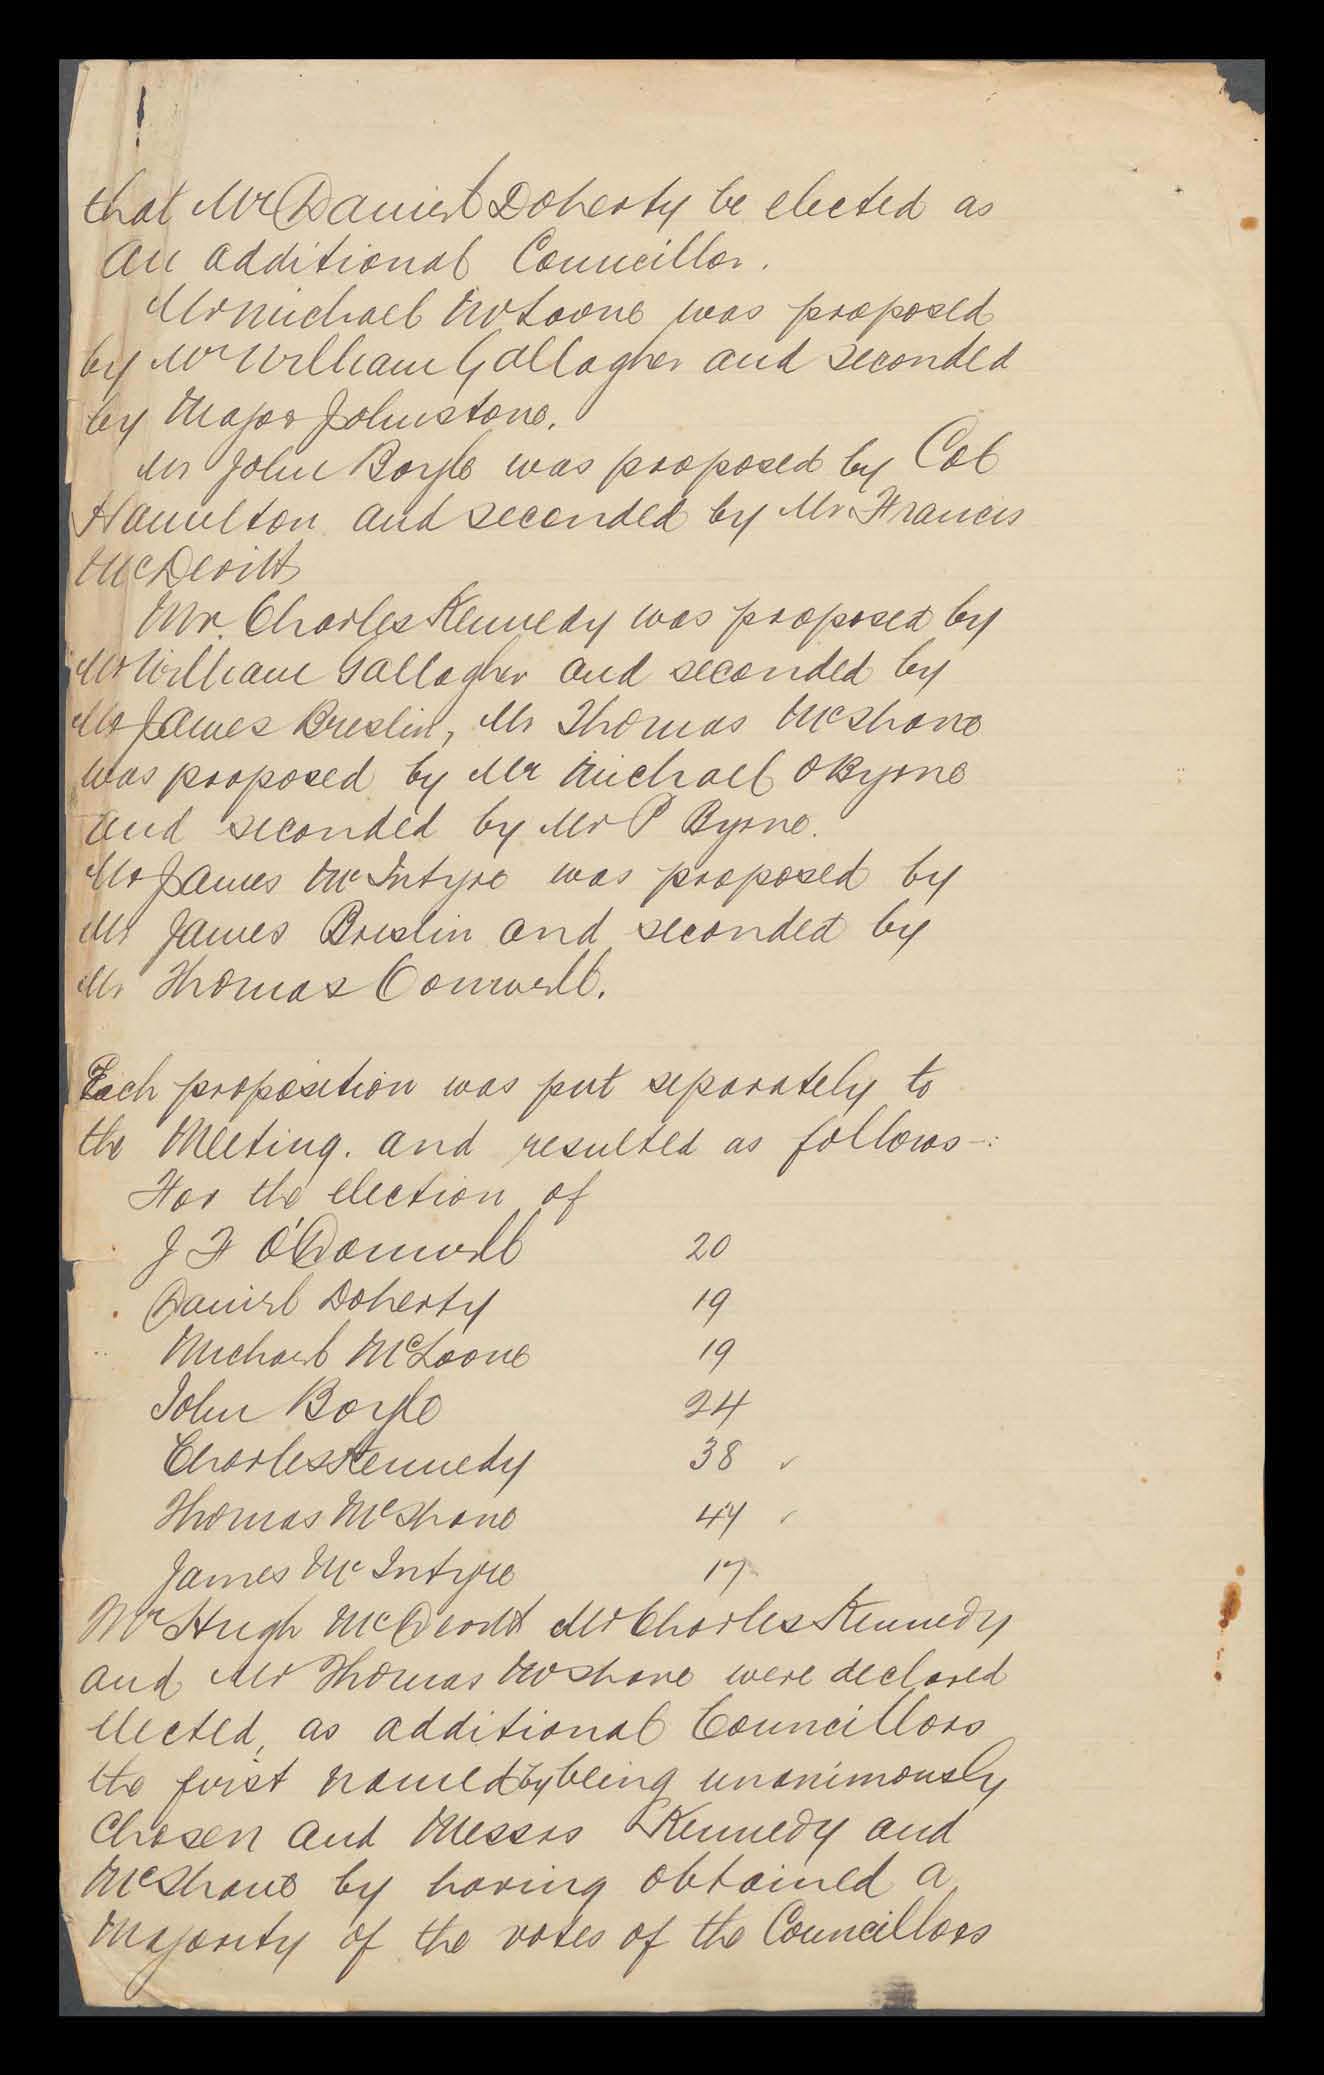 that Mr Daniel Doherty be elected as
an additional Councillor.
Mr Michael McLoone was proposed
by Mr William Gallagher and seconded
by Major Johnstone.
Mr John Boyle was proposed by Col
Hamilton and seconded by Mr Francis
McDevitt
Mr. Charles Kennedy was proposed by
Mr William Gallagher and seconded by
Mr James Breslin, Mr Thomas McShane
was proposed by Mr Michael OByrne
and seconded by Mr P Byrne.
Mr James McIntyre was proposed by
Mr James Breslin and seconded by
Mr Thomas Conwell.
Each proposition was put separately to
the Meeting. and resulted as follows-:
For the election of
J F O'Donnell 20
Daniel Doherty 19
Michael McLoone 19
John Boyle 24
Charles Kennedy 38 ✓
Thomas McShane 44 ✓
James McIntyre 17
Mr Hugh McDevitt Mr Charles Kennedy
and Mr Thomas McShane were declared
elected, as additional Councillors
the first named by being unanimously
Chosen and Messrs Kennedy and
McShane by having obtained a
Majority of the votes of the Councillors